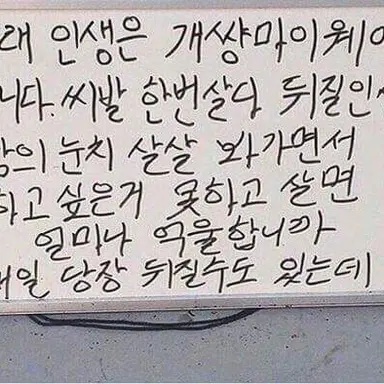 래 인생은 개썅마이웨이
니다. 씨발 한번살다 뒤질인생
람의 눈치 살살 봐가면서
하고 싶은거 못하고 살면
얼마나 억울합니까
내일 당장 뒤질수도 있는데